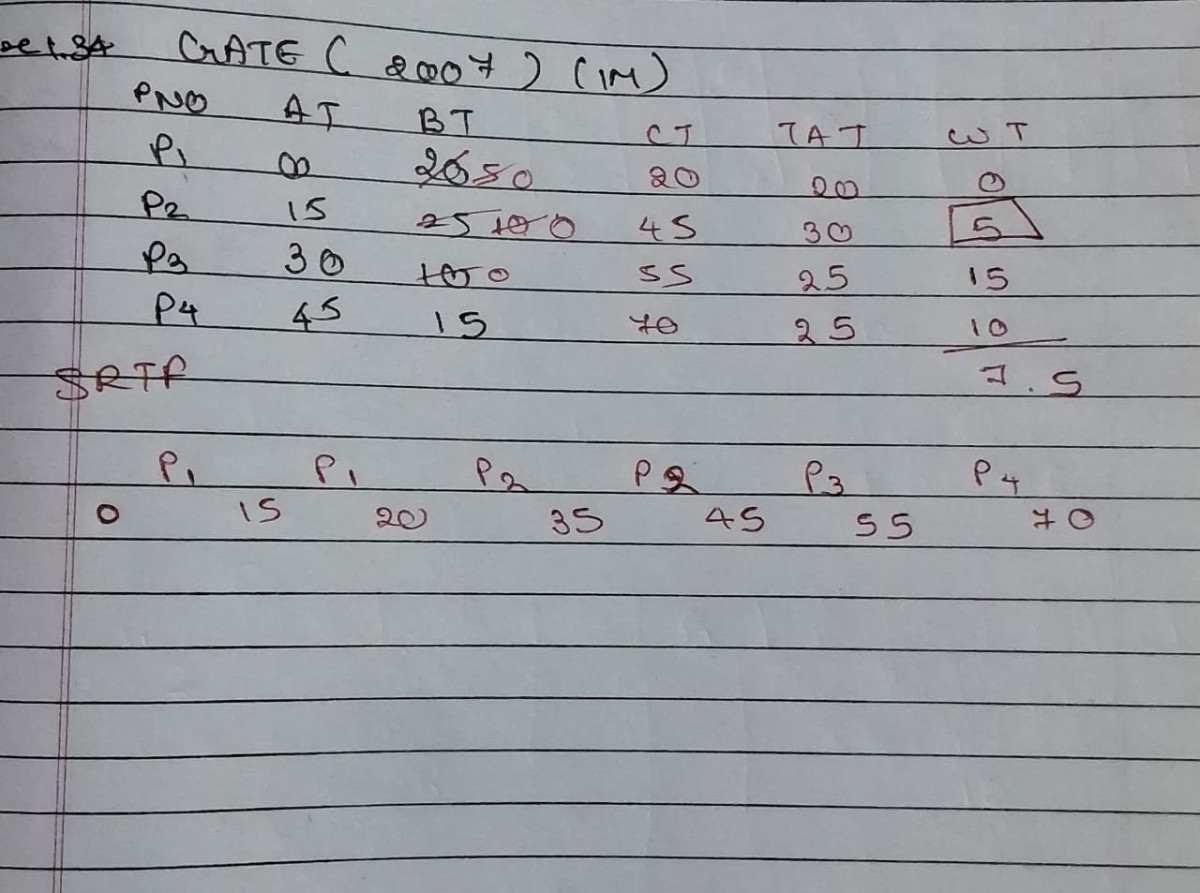 GATE ( 2007 ) (1M)
PNO AT BT CT TAT WT
P1 0 20 5 0 20 20 0
P2 15 25 10 0 45 30 5
P3 30 10 0 55 25 15
P4 45 15 70 25 10
SRTF 7.5
P1 P1 P2 P2 P3 P4
0 15 20 35 45 55 70